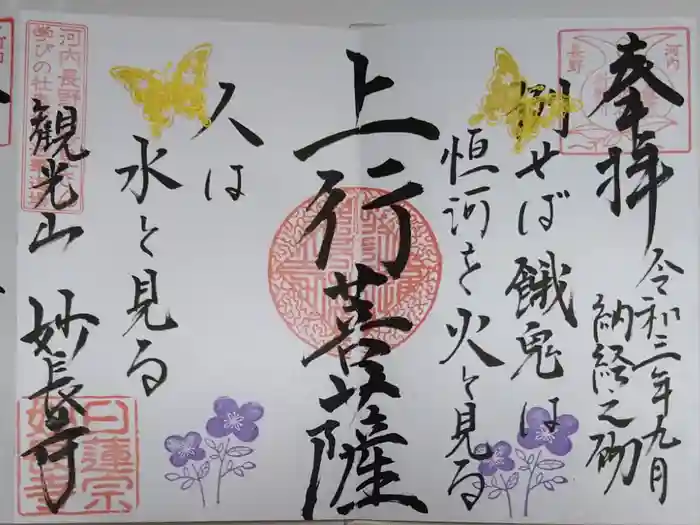 奉拝
河内
長野
令和三年九月
納経之砌
例せば餓鬼は
恒河を火と見る
上行菩薩
人は
水と見る
河内長野
学びの仕
観光山
妙長寺
日蓮宗
妙長寺